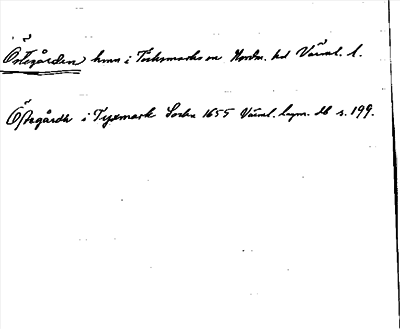 Östegården hmn i Töcksmarks sn Nordm. hd Värml. l.
Östegårdh i Tyxmark Sochn 1655 Värml. lagm. db s. 199.